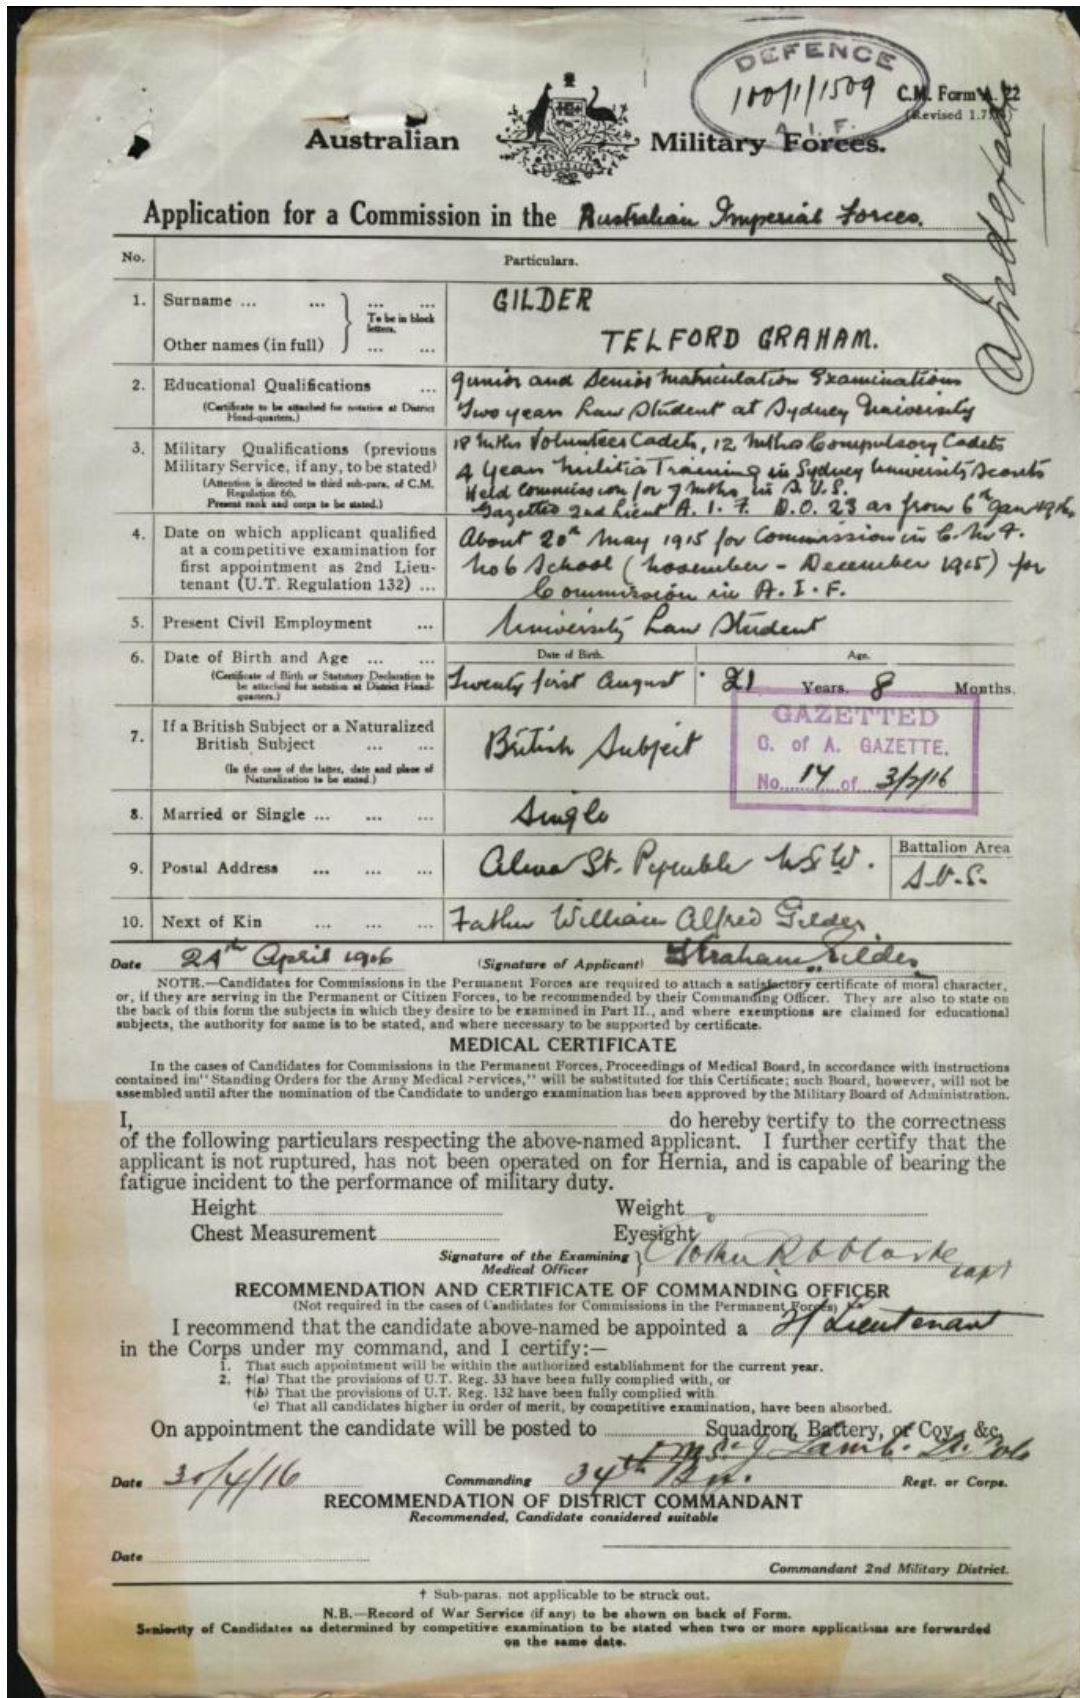 DEFENCE
100/1/1509
A.I.F.
C.M. Form A. 22
(Revised 1.7.)
Australian Military Forces.
Application for a Commission in the Australian Imperial Forces.
No. Particulars.
1. Surname ... ... ... ... GILDER
To be in block letters.
Other names (in full) ... ... TELFORD GRAHAM.
2. Educational Qualifications ... Junior and Senior Matriculation Examinations
(Certificate to be attached for notation at District Head-quarters.) Two years Law Student at Sydney University
3. Military Qualifications (previous 18 Mths Volunteer Cadets, 12 Mths Compulsory Cadets
Military Service, if any, to be stated) 4 Years Militia Training in Sydney University Scouts
(Attention is directed to third sub-para. of C.M. Regulation 66. Held Commission for 7 Mths in S.U.S.
Present rank and corps to be stated.) Gazetted 2nd Lieut A.I.F. D.O. 23 as from 6th Jan 1916
4. Date on which applicant qualified About 20th May 1915 for Commission in C.M.F.
at a competitive examination for No 6 School (November - December 1915) for
first appointment as 2nd Lieu-
tenant (U.T. Regulation 132) ... Commission in A.I.F.
5. Present Civil Employment ... University Law Student
6. Date of Birth and Age ... ... Date of Birth. Age.
(Certificate of Birth or Statutory Declaration to be attached for notation at District Head-quarters.) Twenty first August 21 Years. 8 Months.
7. If a British Subject or a Naturalized
British Subject ... ... British Subject
(In the case of the latter, date and place of Naturalization to be stated.)
GAZETTED
C. of A. GAZETTE.
No. 14 of 3/2/16
8. Married or Single ... ... ... Single
9. Postal Address ... ... ... Alma St. Pymble N.S.W. Battalion Area
S.U.S.
10. Next of Kin ... ... ... Father William Alfred Gilder
Date 24th April 1916 (Signature of Applicant) T Graham Gilder
NOTE.—Candidates for Commissions in the Permanent Forces are required to attach a satisfactory certificate of moral character,
or, if they are serving in the Permanent or Citizen Forces, to be recommended by their Commanding Officer. They are also to state on
the back of this form the subjects in which they desire to be examined in Part II., and where exemptions are claimed for educational
subjects, the authority for same is to be stated, and where necessary to be supported by certificate.
MEDICAL CERTIFICATE
In the cases of Candidates for Commissions in the Permanent Forces, Proceedings of Medical Board, in accordance with instructions
contained in "Standing Orders for the Army Medical Services," will be substituted for this Certificate; such Board, however, will not be
assembled until after the nomination of the Candidate to undergo examination has been approved by the Military Board of Administration.
I, do hereby certify to the correctness
of the following particulars respecting the above-named applicant. I further certify that the
applicant is not ruptured, has not been operated on for Hernia, and is capable of bearing the
fatigue incident to the performance of military duty.
Height Weight
Chest Measurement Eyesight
Signature of the Examining
Medical Officer Capt
RECOMMENDATION AND CERTIFICATE OF COMMANDING OFFICER
(Not required in the cases of Candidates for Commissions in the Permanent Forces)
I recommend that the candidate above-named be appointed a 2/Lieutenant
in the Corps under my command, and I certify:—
1. That such appointment will be within the authorized establishment for the current year.
2. †(a) That the provisions of U.T. Reg. 33 have been fully complied with, or
†(b) That the provisions of U.T. Reg. 132 have been fully complied with
(c) That all candidates higher in order of merit, by competitive examination, have been absorbed.
On appointment the candidate will be posted to Squadron, Battery, or Coy., &c.
Lamb.
Date 30/4/16 Commanding 34th Bn. Regt. or Corps.
RECOMMENDATION OF DISTRICT COMMANDANT
Recommended, Candidate considered suitable
Date
Commandant 2nd Military District.
† Sub-paras. not applicable to be struck out.
N.B.—Record of War Service (if any) to be shown on back of Form.
Seniority of Candidates as determined by competitive examination to be stated when two or more applications are forwarded
on the same date.